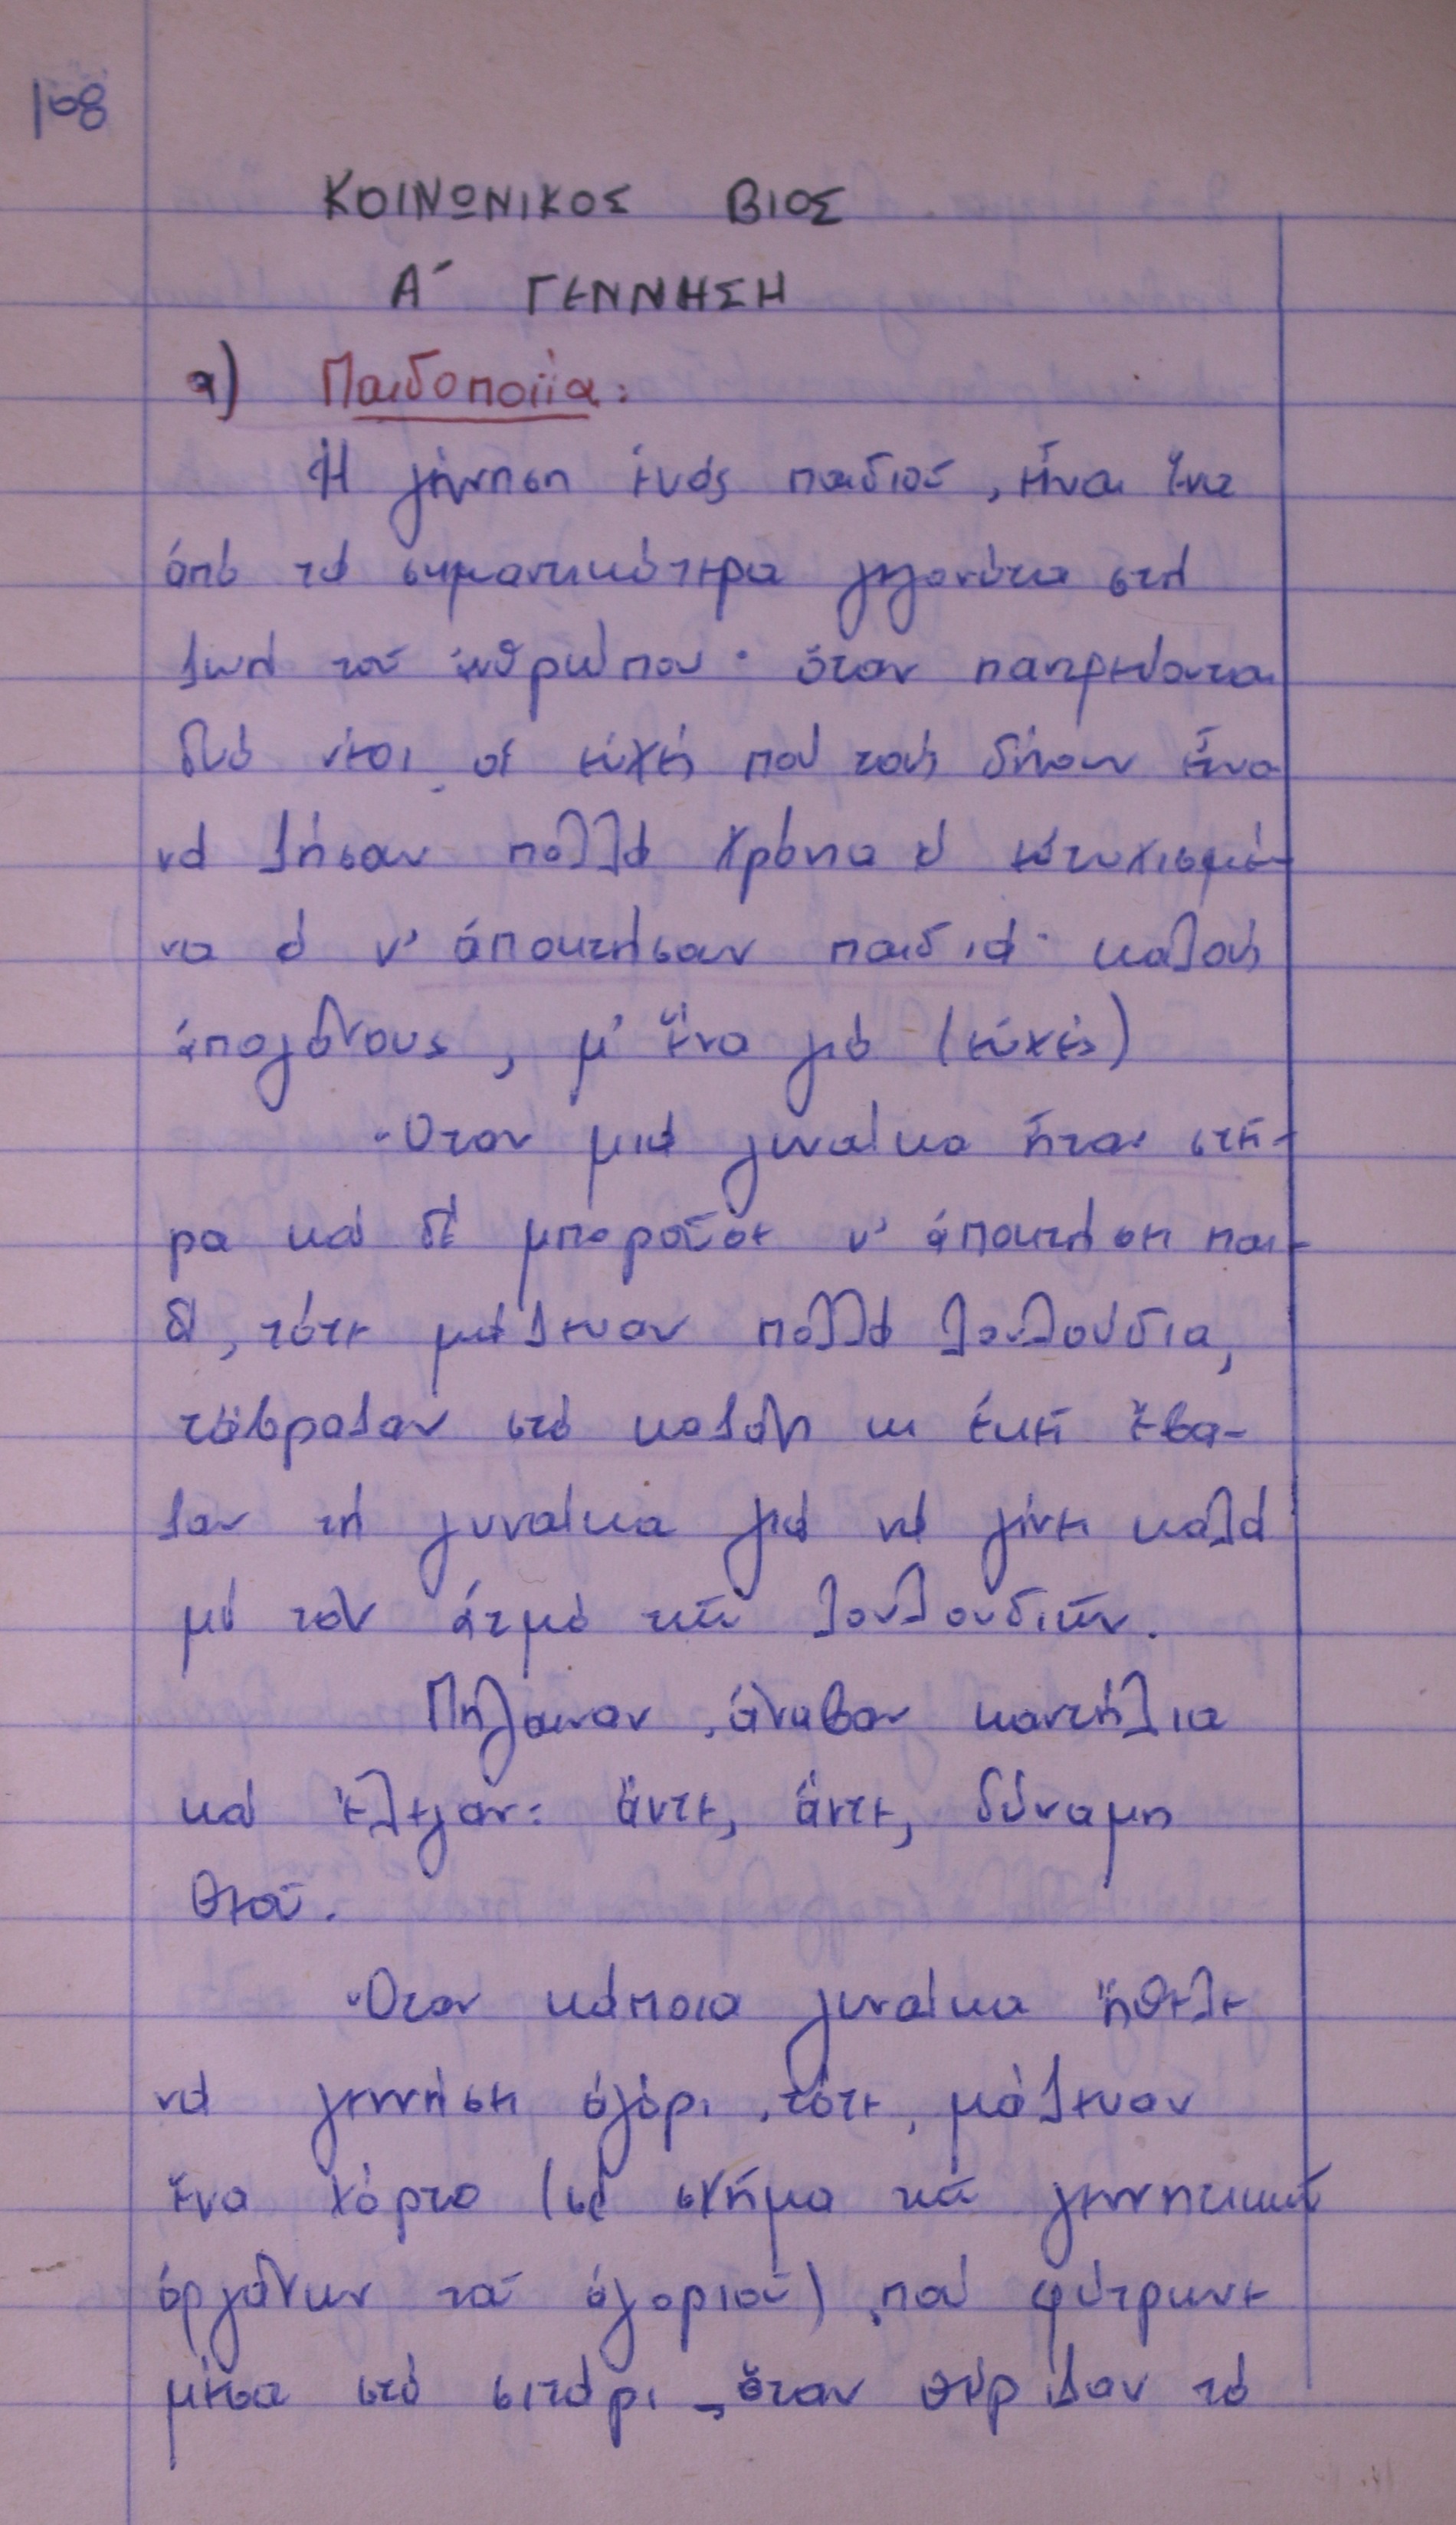 168
ΚΟΙΝΩΝΙΚΟΣ ΒΙΟΣ
Α΄ ΓΕΝΝΗΣΗ
α) Παιδοποιΐα:
Ἡ γέννηση ἑνός παιδιοῦ, εἶναι ἕνα
ἀπό τά σημαντικότερα γεγονότα στή
ζωή τοῦ ἀνθρώπου· ὅταν παντρεύονται
δυό νέοι, οἱ εὐχές πού τούς δίνουν εἶναι
νά ζήσουν πολλά χρόνια κ' εὐτυχισμέ-
να κ' ν' ἀποκτήσουν παιδιά· καλούς
ἀπογόνους, μ' ἕνα γιό (εὐχές)
Ὅταν μιά γυναίκα ἦταν στεῖ-
ρα καί δέ μποροῦσε ν' ἀποκτήσει παι-
δί, τότε μάζευαν πολλά λουλούδια,
τἄβραζαν στό καζάνι κι ἐκεῖ ἔβα-
ζαν τή γυναίκα γιά νά γίνει καλά
μέ τόν ἀτμό τῶν λουλουδιῶν.
Πήγαιναν, ἄναβαν καντήλια
καί ἔλεγαν: ἄντε, ἄντε, δύναμη
Θεοῦ.
Ὅταν κάποια γυναίκα ἤθελε
νά γεννήσει ἀγόρι, τότε, μάζευαν
ἕνα χόρτο (σέ σχῆμα τῶν γεννητικῶν
ὀργάνων τοῦ ἀγοριοῦ), πού φύτρωνε
μέσα στό σιτάρι, ὅταν θέριζαν τό